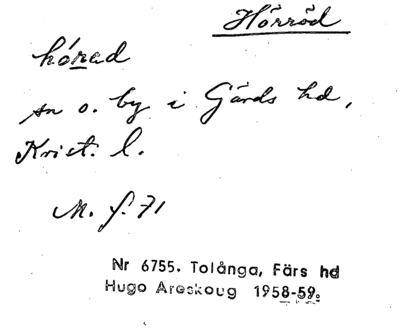 Hörröd
hórad
sn o. by i Gärds hd,
Krist. l.
M. f. 71
Nr 6755. Tolånga, Färs hd
Hugo Areskoug 1958-59.